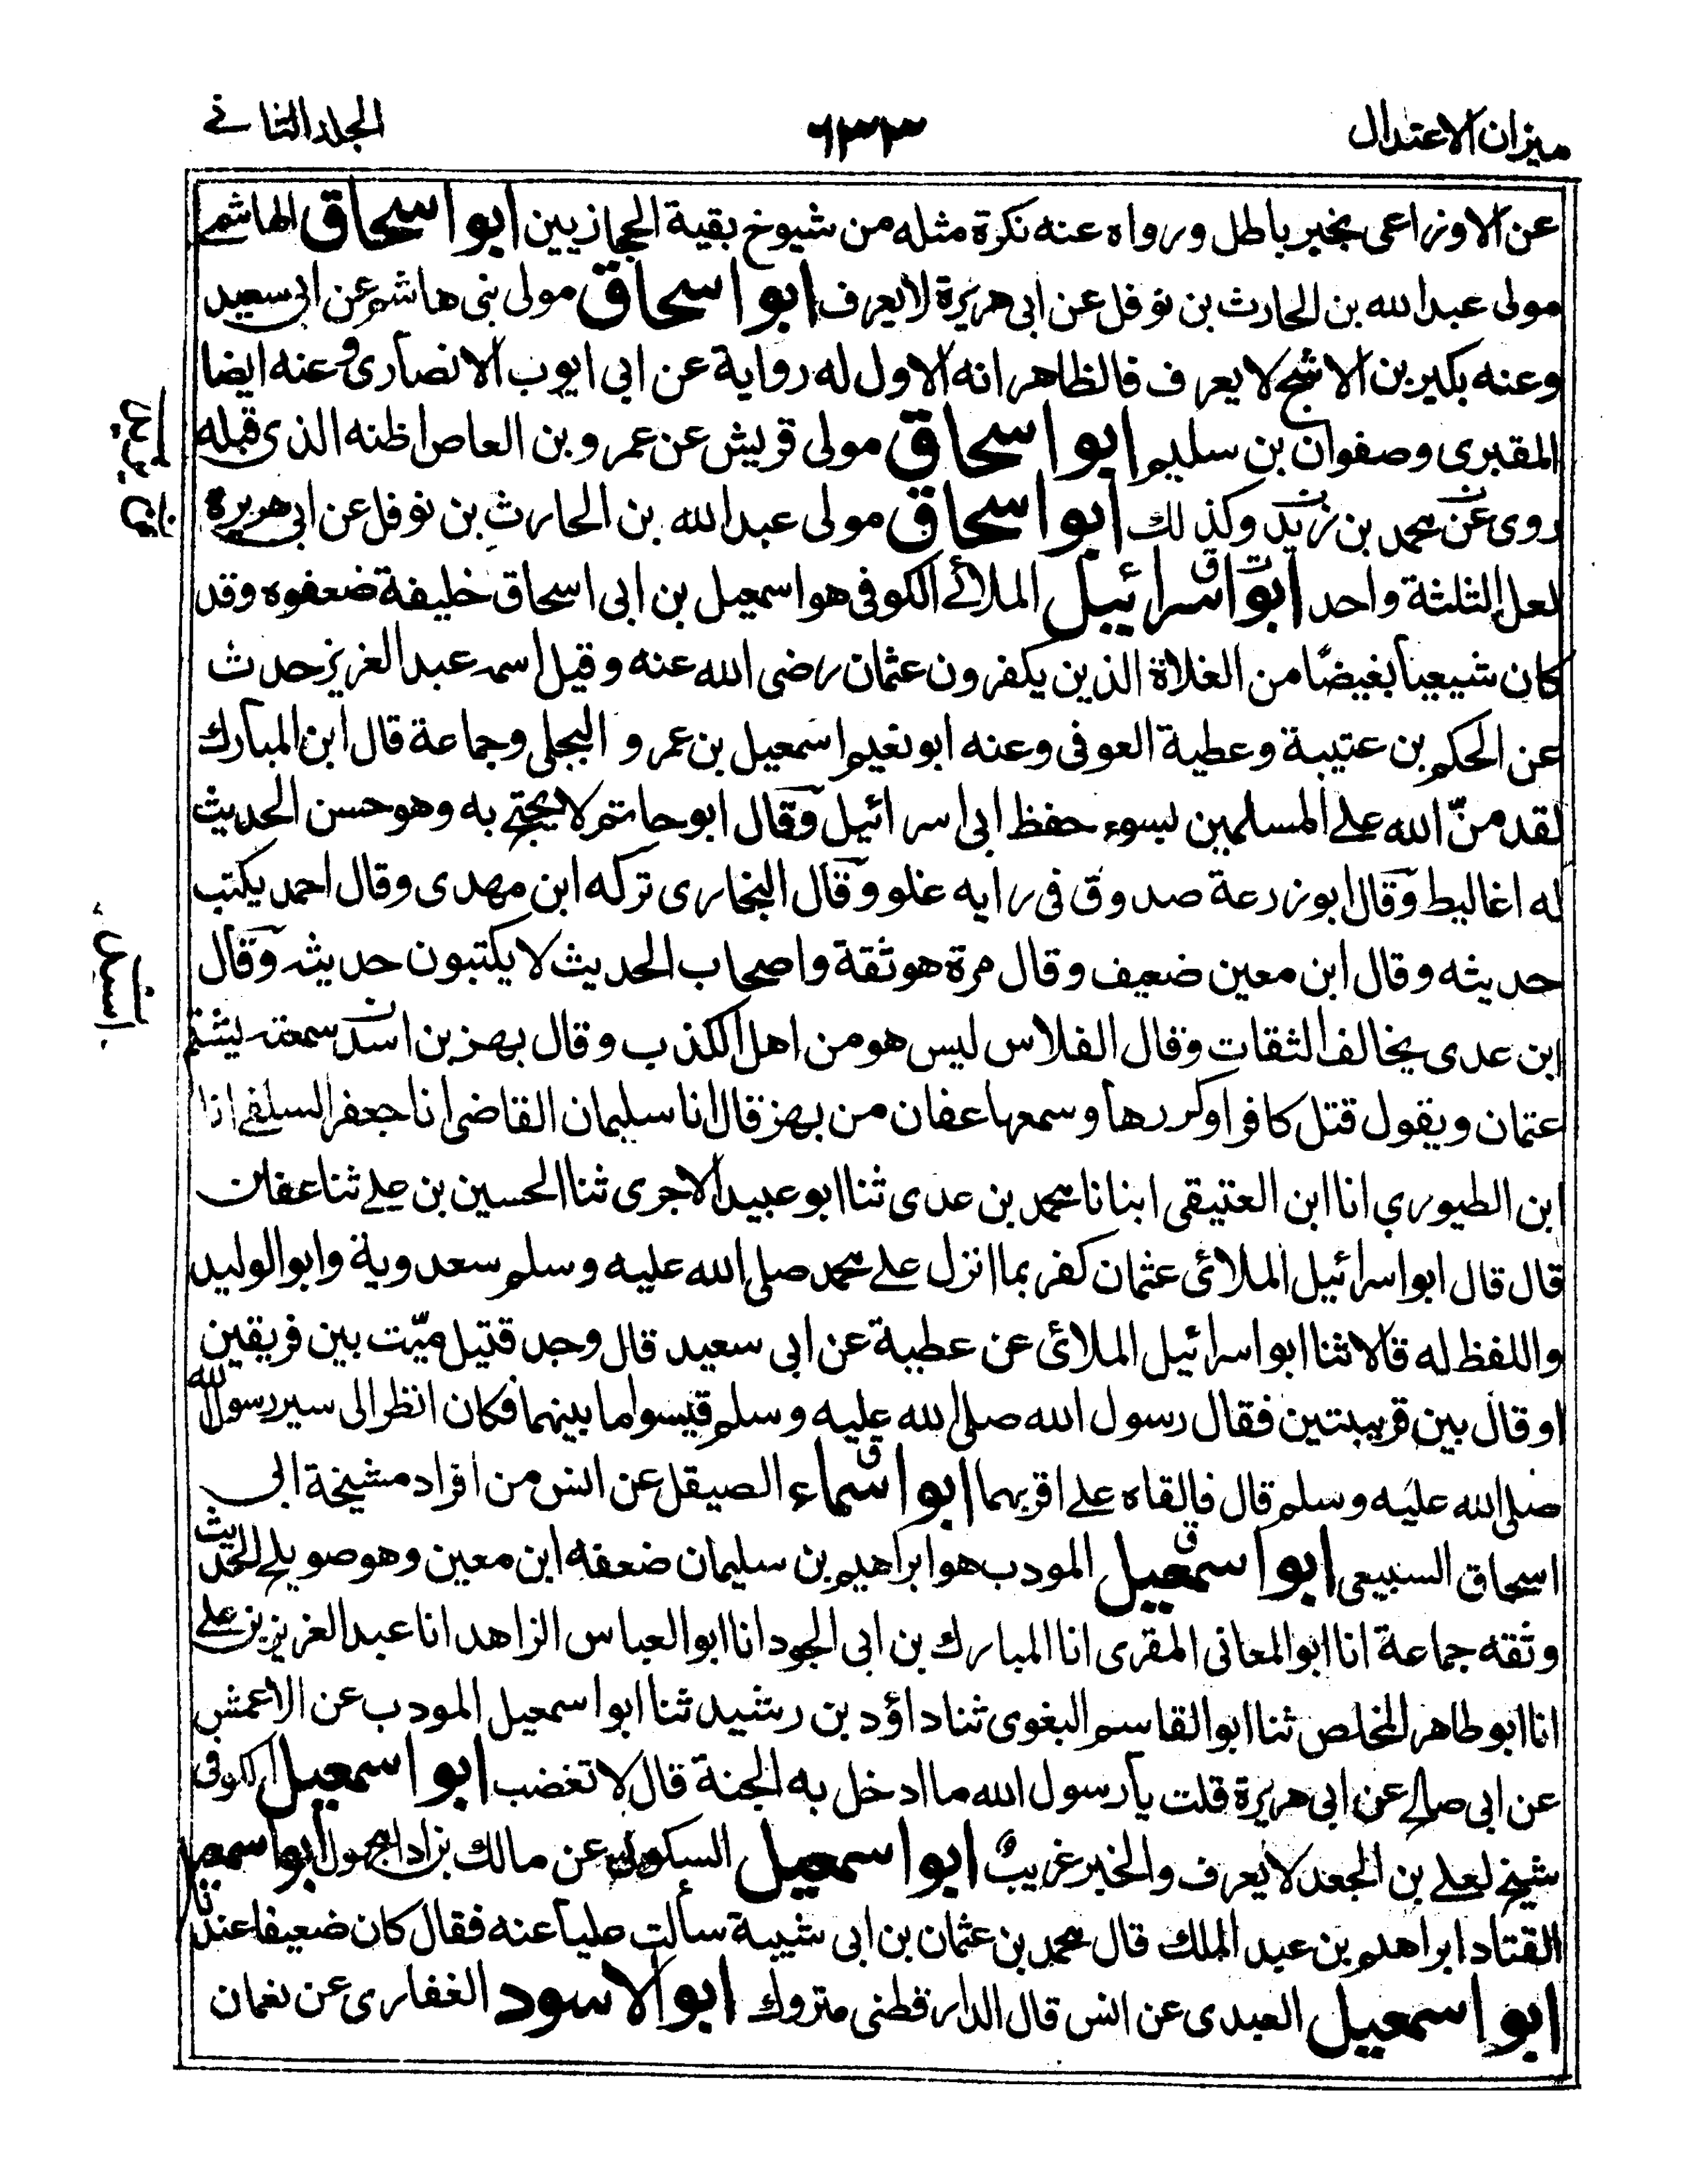 ميزان الاعتدال
٦٣٣
المجلد الثاني
عن الاوزاعى بخبر باطل ورواه عنه نكرة مثله من شيوخ بقية الحجازيين ابو اسحاق الهاشمي
مولى عبد الله بن الحارث بن نوفل عن ابى هريرة لا يعرف ابو اسحاق مولى بنى هاشم عن ابى سعيد
وعنه بكير بن الاشج لا يعرف فالظاهر انه الاول له رواية عن ابى ايوب الانصارى و عنه ايضا
المقبرى وصفوان بن سليم ابو اسحاق مولى قريش عن عمرو بن العاص اظنه الذى قبله
روى عن محمد بن زيد وكذلك ابو اسحاق مولى عبد الله بن الحارث بن نوفل عن ابى هريرة
لعل الثلثة واحد ابو اسرائيل الملائے الكوفى هو اسمعيل بن ابى اسحاق خليفة ضعفوه وقد
كان شيعيا بغيضا من الغلاة الذين يكفرون عثمان رضى الله عنه وقيل اسمه عبد العزيز حدث
عن الحكم بن عتيبة وعطية العوفى وعنه ابو نعيم اسمعيل بن عمرو البجلى وجماعة قال ابن المبارك
لقد منّ الله علے المسلمين بسوء حفظ ابى اسرائيل وقال ابو حاتم لا يحتج به وهو حسن الحديث
له اغاليط وقال ابو زرعة صدوق فى رايه غلو وقال البخارى تركه ابن مهدى وقال احمد يكتب
حديثه وقال ابن معين ضعيف وقال مرة هو ثقة واصحاب الحديث لا يكتبون حديثه وقال
ابن عدى يخالف الثقات وقال الفلاس ليس هو من اهل الكذب وقال بهز بن اسد سمعته يشتم
عثمان ويقول قتل كافرا وكررها وسمعها عفان من بهز قال انا سليمان القاضى انا جعفر السلفے انا
ابن الطيوري انا ابن العتيقى ابنانا محمد بن عدى ثنا ابو عبيد الاجرى ثنا الحسين بن علے ثنا عفان
قال قال ابو اسرائيل الملائى عثمان كفر بما انزل علے محمد صلى الله عليه وسلم سعدوية وابو الوليد
واللفظ له قالا ثنا ابو اسرائيل الملائى عن عطية عن ابى سعيد قال وجد قتيل ميّت بين فريقين
او قال بين قريبتين فقال رسول الله صلى الله عليه وسلم قيسوا ما بينهما فكان انظر الى سير رسول الله
صلى الله عليه وسلم قال فالقاه علے اقربهما ابو اسماء الصيقل عن انس من افراد مشيخة ابى
اسحاق السبيعى ابو اسمعيل المودب هو ابراهيم بن سليمان ضعفه ابن معين وهو صويلح الحديث
وثقه جماعة انا ابو المعانى المقرى انا المبارك بن ابى الجود انا ابو العباس الزاهد انا عبد العزيز بن علے
انا ابو طاهر المخلص ثنا ابو القاسم البغوى ثنا داؤد بن رشيد ثنا ابو اسمعيل المودب عن الاعمش
عن ابى صالح عن ابى هريرة قلت يا رسول الله ما ادخل به الجنة قال لا تغضب ابو اسمعيل الكوفى
شيخ لعلے بن الجعد لا يعرف والخبر غريب ابو اسمعيل السكونى عن مالك بن ادا مجهول ابو اسمعيل
القتاد ابراهيم بن عبد الملك قال محمد بن عثمان بن ابى شيبة سألت عليا عنه فقال كان ضعيفا عندنا
ابو اسمعيل العبدى عن انس قال الدارقطنى متروك ابو الاسود الغفارى عن نعمان